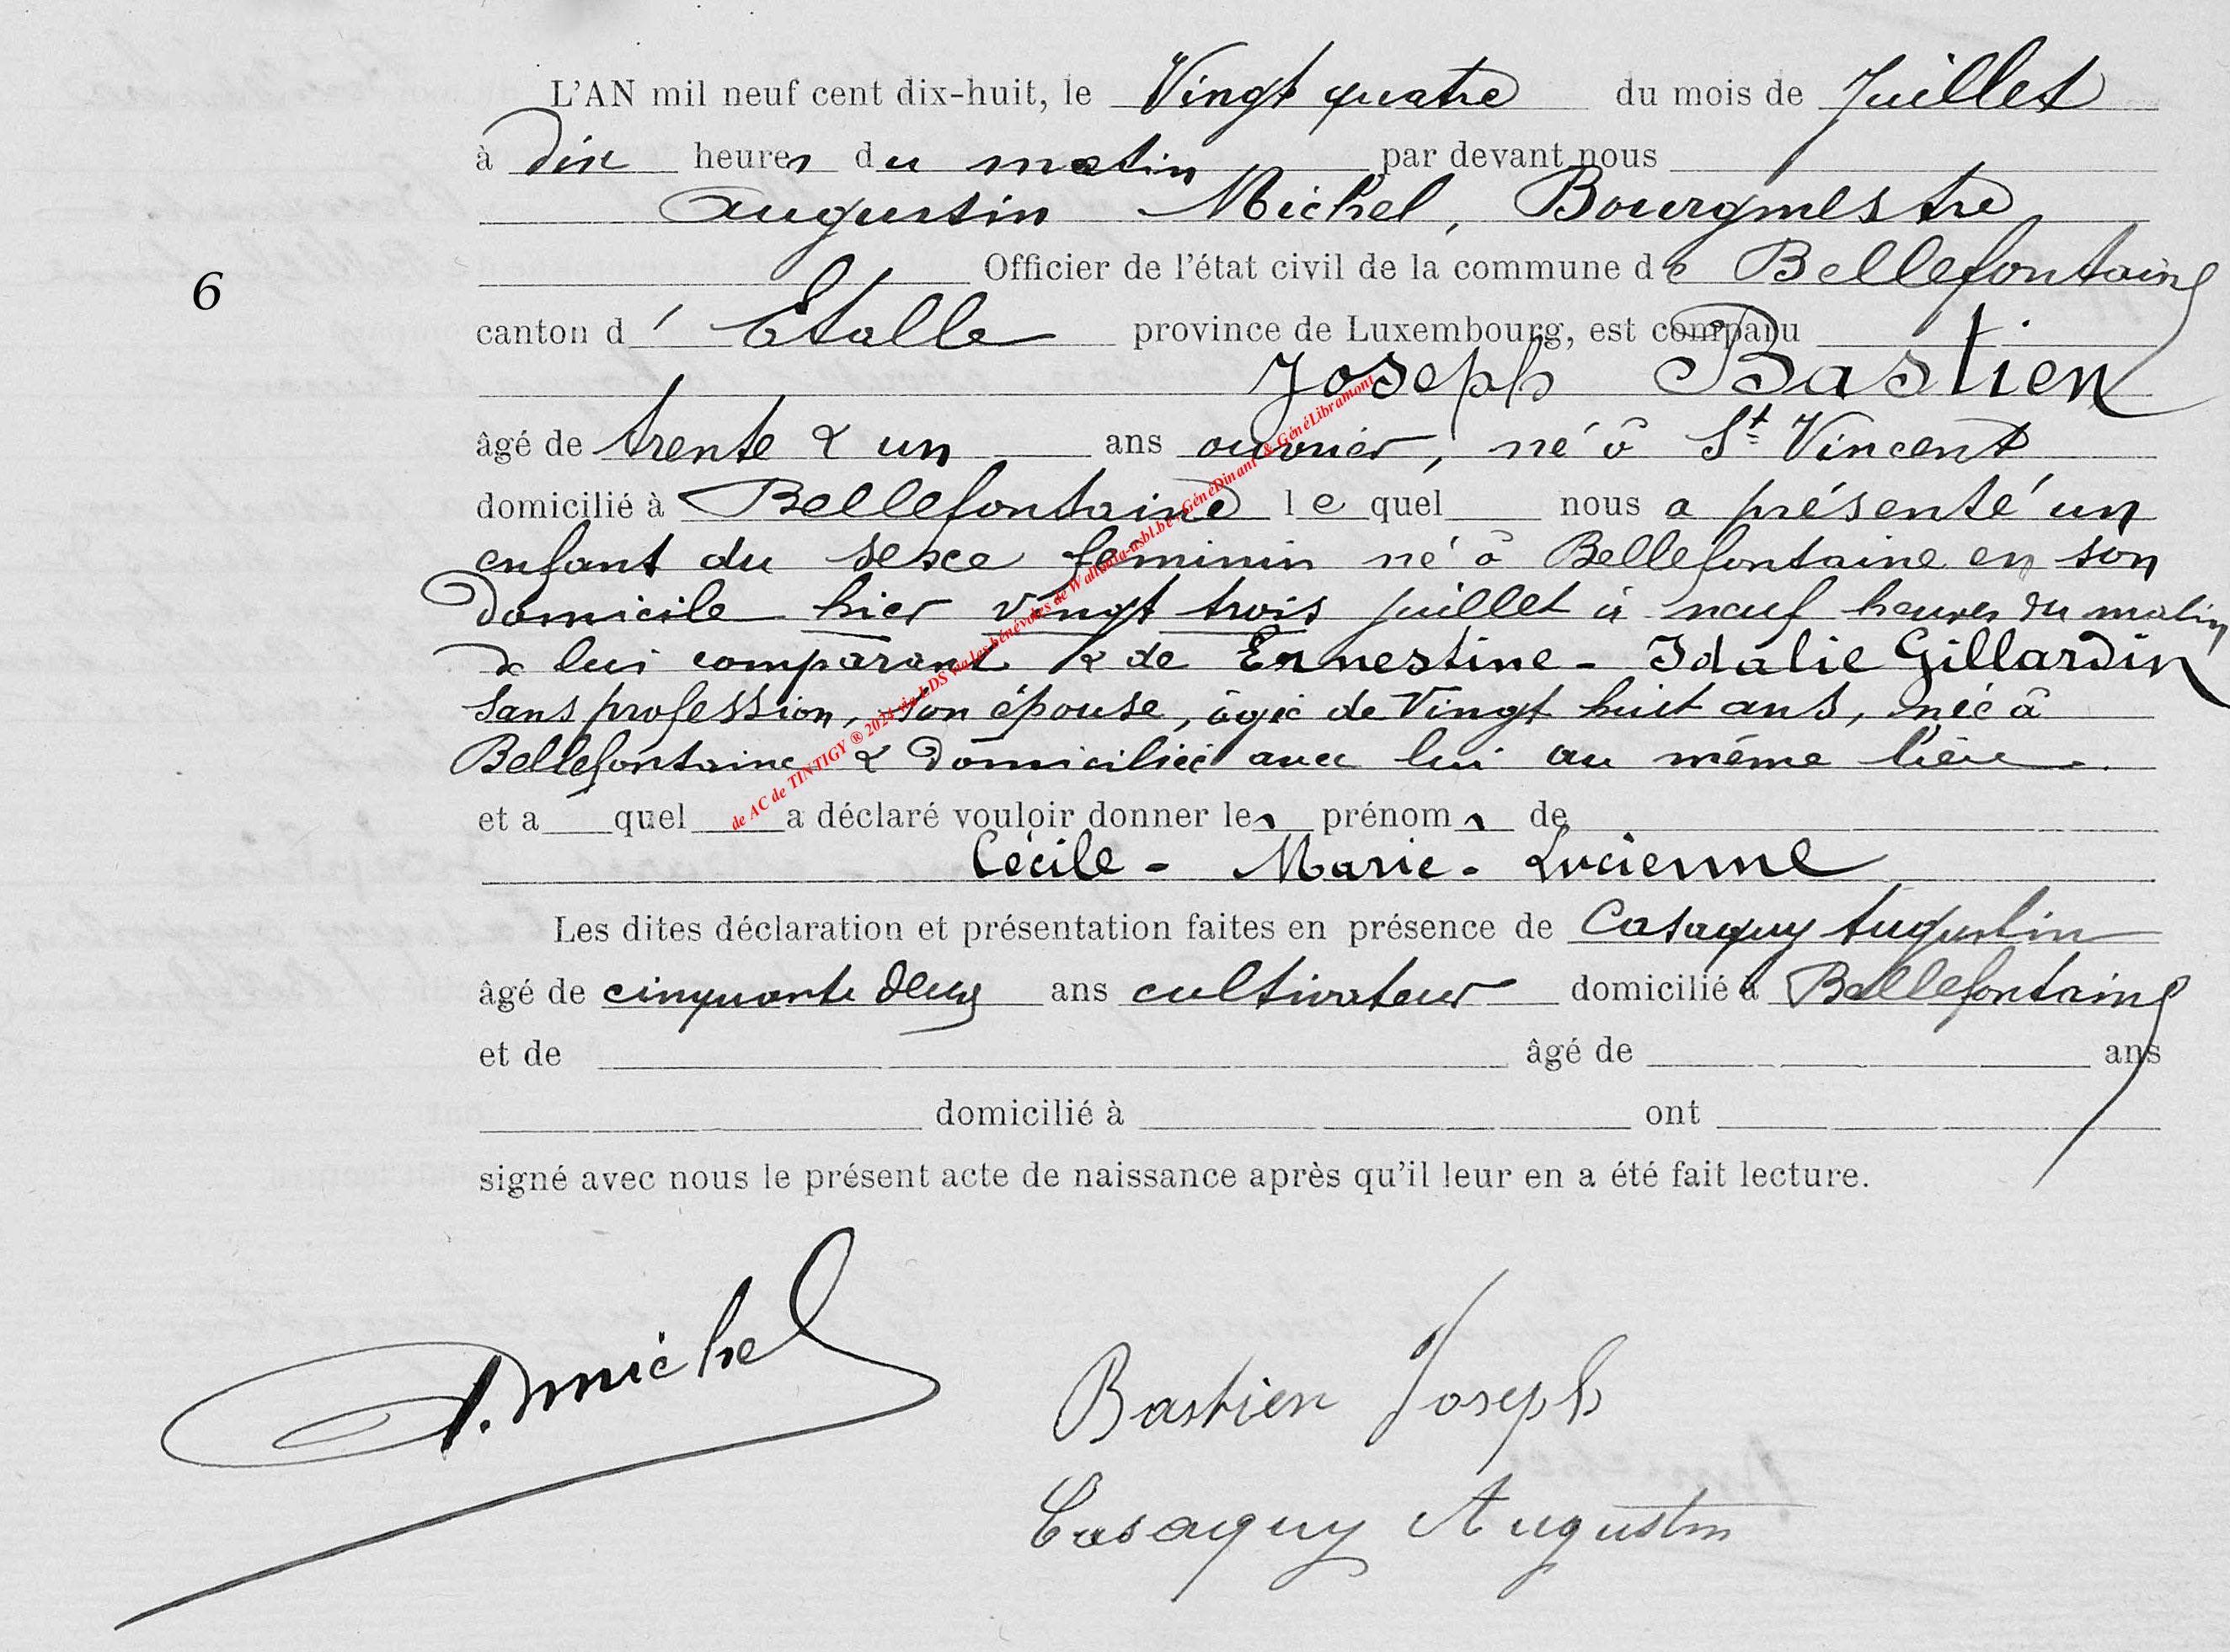 L'AN mil neuf cent dix-huit, le Vingt quatre du mois de Juillet
à dix heures du matin par devant nous
Augustin Michel, Bourgmestre
Officier de l'état civil de la commune de Bellefontaine
6
canton d' Etalle province de Luxembourg, est comparu
Joseph Bastien
âgé de trente & un ans ouvrier, né à St Vincent
domicilié à Bellefontaine le quel nous a présenté un
enfant du sexe feminin né à Bellefontaine en son
domicile hier vingt trois juillet à neuf heures du matin
de lui comparant & de Ernestine - Idalie Gillardin
sans profession, son épouse, âgée de Vingt huit ans, née à
Bellefontaine & domiciliée avec lui au même lieu.
et a quel a déclaré vouloir donner les prénoms de
Cécile - Marie - Lucienne
Les dites déclaration et présentation faites en présence de Casaquy Augustin
âgé de cinquante deux ans cultivateur domicilié à Bellefontaine
et de âgé de ans
domicilié à ont
signé avec nous le présent acte de naissance après qu'il leur en a été fait lecture.
A. Michel
Bastien Joseph
Casaquy Augustin
de AC de TINTIGY ® 2024 via LDS via les bénévoles de Wallonia-asbl.be, GénéDinant & GénéLibramont